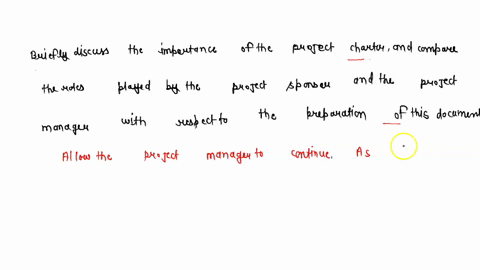 Briefly discuss the importance of the project charter, and compare
the roles played by the project sponsor and the project
manager with respect to the preparation of this document
Allow the project manager to continue. As